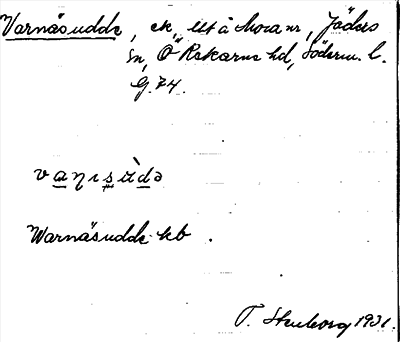 Varnäsudde, ek, Ut å Mora nr, Jäders
sn, Ö Rekarne hd, Söderm. l.
G. 74.
vaṇɩsùdə
Warnäsudde kb.
T. Stenborg 1931.